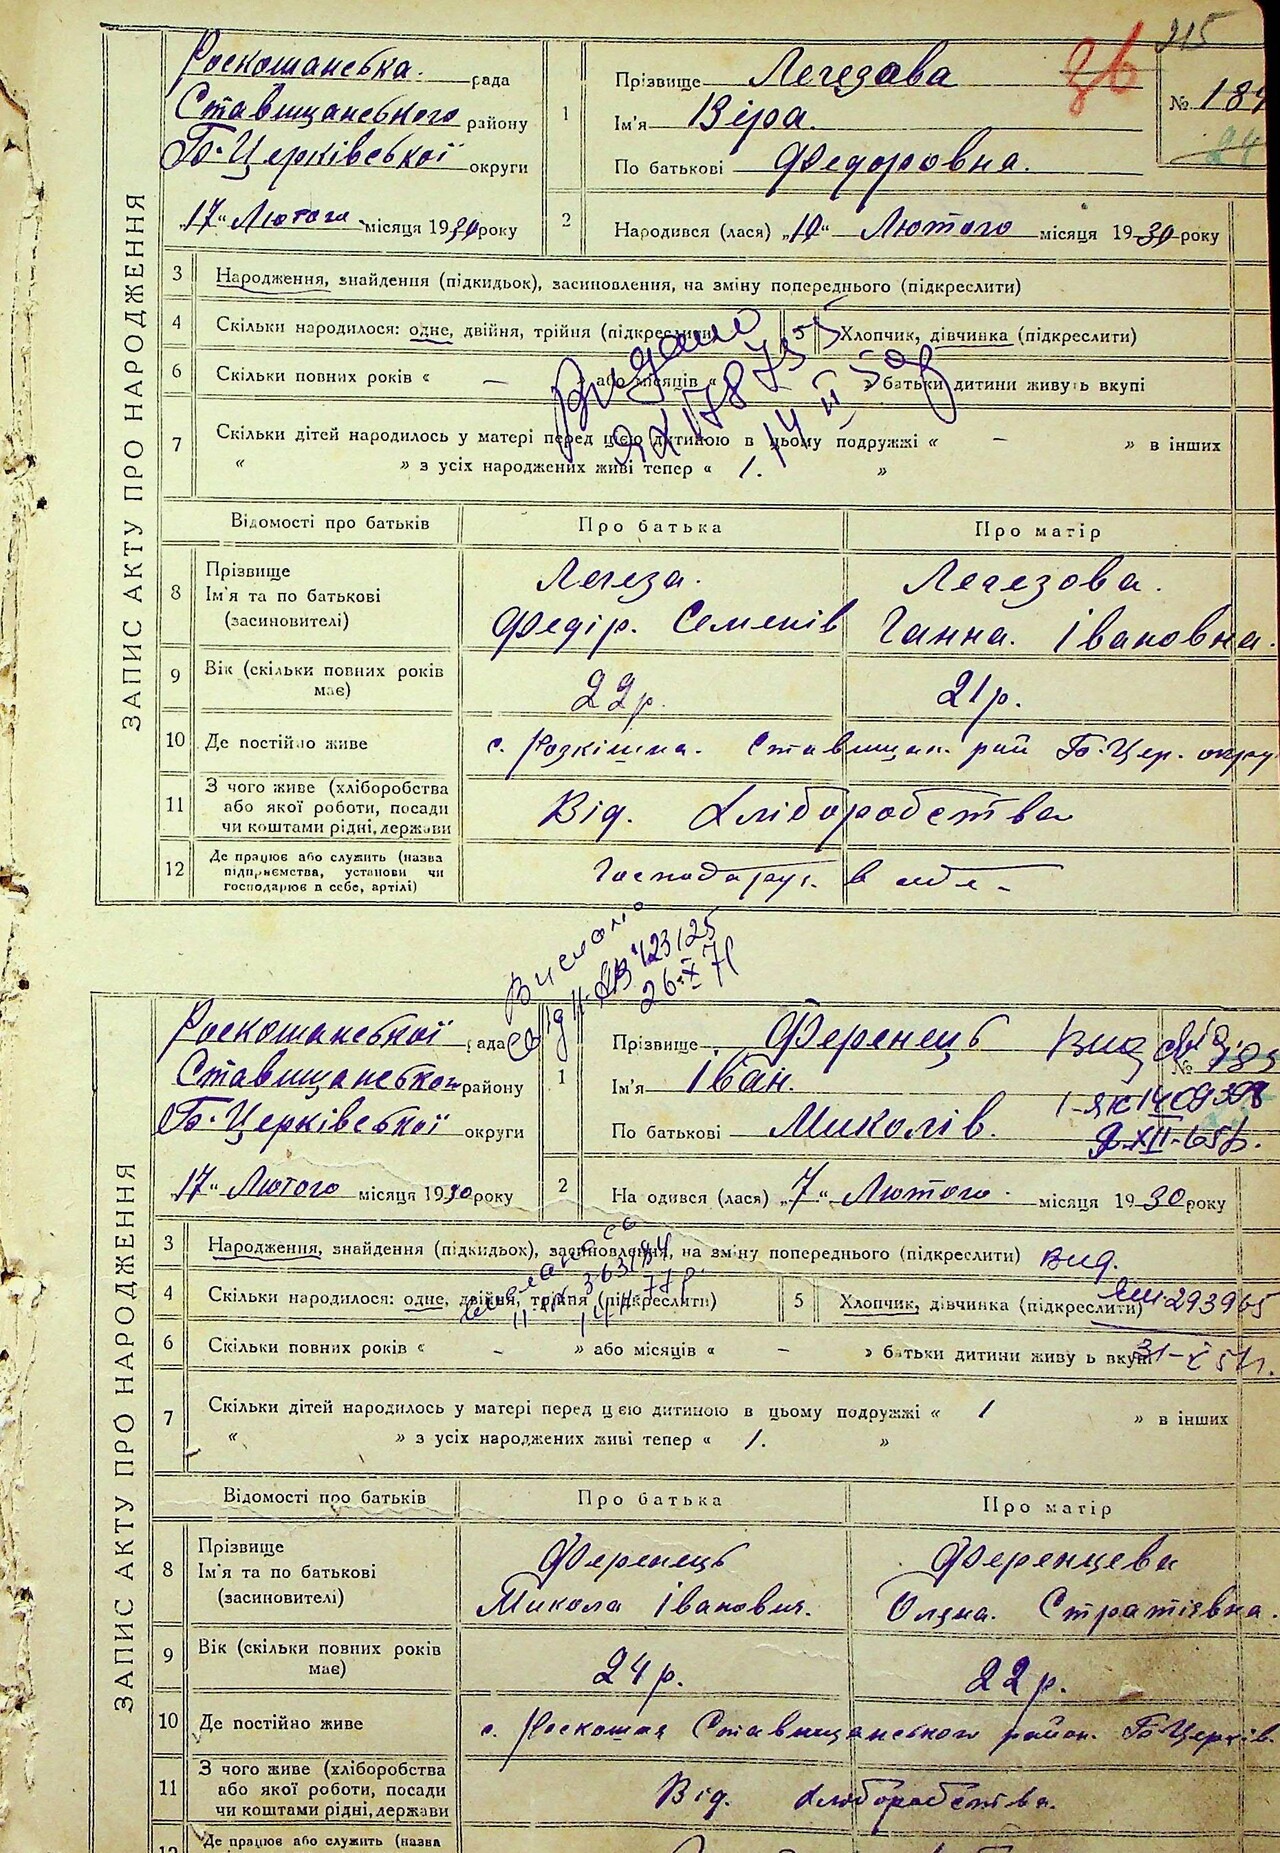 215
36
Роскошанська. рада
Ставищанського району
Б-Церківської округи
„17“ Лютого місяця 1930 року
1
Прізвище Легезова
Ім'я Віра.
По батькові Федоровна.
№ 184
24
2
Народився (лася) „10“ Лютого місяця 1930 року
ЗАПИС АКТУ ПРО НАРОДЖЕННЯ
3 Народження, знайдення (підкидьок), засиновлення, на зміну попереднього (підкреслити)
4 Скільки народилося: одне, двійня, трійня (підкреслити) 5 Хлопчик, дівчинка (підкреслити)
6 Скільки повних років « — » або місяців « » батьки дитини живуть вкупі
7 Скільки дітей народилось у матері перед цією дитиною в цьому подружжі « — » в інших
« » з усіх народжених живі тепер « 1. »
Видано
14 II 50
Відомості про батьків Про батька Про матір
8 Прізвище Ім'я та по батькові (засиновителі)
Легеза. Легезова.
Федір. Семенів Ганна. Івановна.
9 Вік (скільки повних років має) 22р. 21р.
10 Де постійно живе с. Розкішна. Ставищан. рай Б-Цер. окру
11 З чого живе (хліборобства або якої роботи, посади чи коштами рідні, держави Від. Хліборобства
12 Де працює або служить (назва підприємства, установи чи господарює в себе, артілі) Господарює. в себе.
Выслано
423125
26-X 71
Роскошанської рада
Ставищанського району
Б-Церківської округи
„17“ Лютого місяця 1930 року
1
Прізвище Ференець
Ім'я Іван.
По батькові Миколів.
№
2
На одився (лася) „7“ Лютого. місяця 1930 року
ЗАПИС АКТУ ПРО НАРОДЖЕННЯ
3 Народження, знайдення (підкидьок), засиновлення, на зміну попереднього (підкреслити) Вид.
4 Скільки народилося: одне, двійня, трійня (підкреслити) 5 Хлопчик, дівчинка (підкреслити)
293965
6 Скільки повних років « — » або місяців « — » батьки дитини живу ь вкупі
7 Скільки дітей народилось у матері перед цією дитиною в цьому подружжі « 1 » в інших
« » з усіх народжених живі тепер « 1. »
Відомості про батьків Про батька Про матір
8 Прізвище Ім'я та по батькові (засиновителі)
Ференець Ференцева
Микола Іванович. Олена. Стратіївна.
9 Вік (скільки повних років має) 24р. 22р.
10 Де постійно живе с. Роскошна Ставищанського район. Б-Церків.
11 З чого живе (хліборобства або якої роботи, посади чи коштами рідні, держави Від. Хліборобства.
12 Де працює або служить (назва